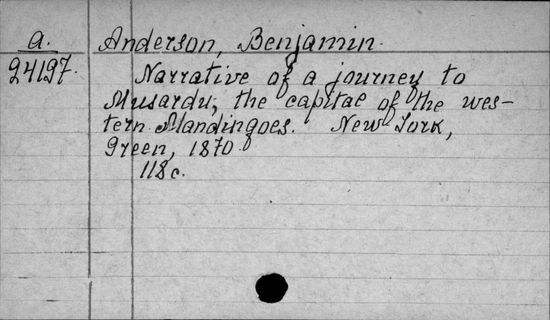 a. Anderson, Benjamin.
24197. Narrative of a journey to
Musardu, the capitae of the wes-
tern Mandingoes. New York,
Green, 1870.
118c.